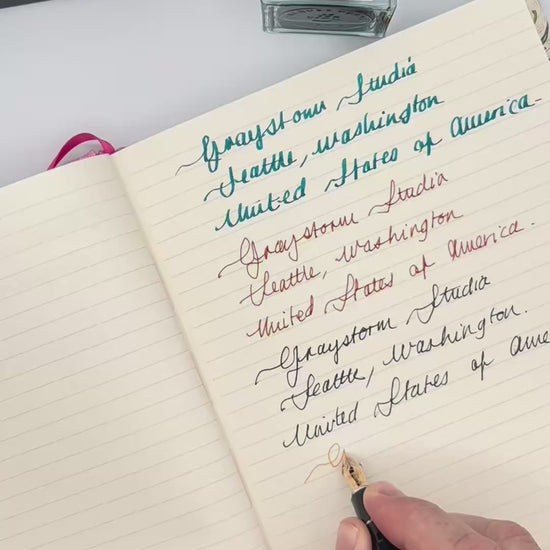 Graystorm Studia
Seattle, Washington
United States of America.
Graystorm Studia
Seattle, Washington
United States of America.
Graystorm Studia
Seattle, Washington.
United States of Ame